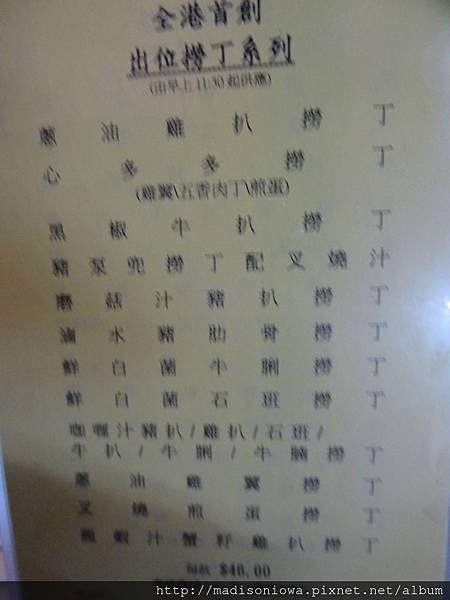 全港首創
出位撈丁系列
(由早上11:30起供應)
蔥油雞扒撈丁
心多多撈丁
(雞翼\五香肉丁\煎蛋)
黑椒牛扒撈丁
豬泵兜撈丁配叉燒汁
磨菇汁豬扒撈丁
滷水豬肋骨撈丁
鮮白菌牛脷撈丁
鮮白菌石班撈丁
咖喱汁豬扒/雞扒/石班/
牛扒/牛脷/牛腩撈丁
蔥油雞翼撈丁
叉燒煎蛋撈丁
龍蝦汁蟹籽雞扒撈丁
每款 $46.00
http://madisoniowa.pixnet.net/album